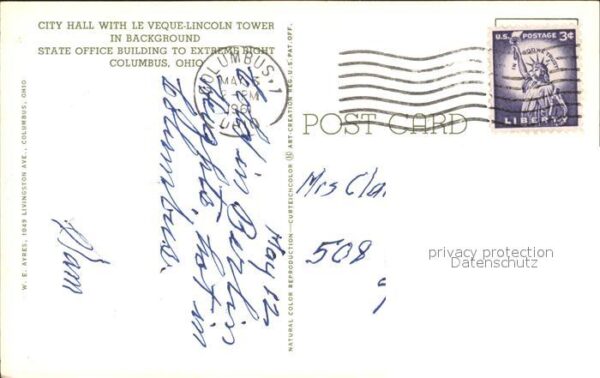 CITY HALL WITH LE VEQUE-LINCOLN TOWER
IN BACKGROUND
STATE OFFICE BUILDING TO EXTREME RIGHT
COLUMBUS, OHIO
W. E. AYRES, 1045 LIVINGSTON AVE., COLUMBUS, OHIO
May 12
in Berlin
Heights, not in
Columbus.
Mam
NATURAL COLOR REPRODUCTION - CURTEICHCOLOR ® ART-CREATION REG. U.S. PAT. OFF.
POST CARD
COLUMBUS, 1
PM
196
OHIO
U.S. POSTAGE 3¢
IN GOD WE TRUST
LIBERTY
Mrs Cla
508
privacy protection
Datenschutz